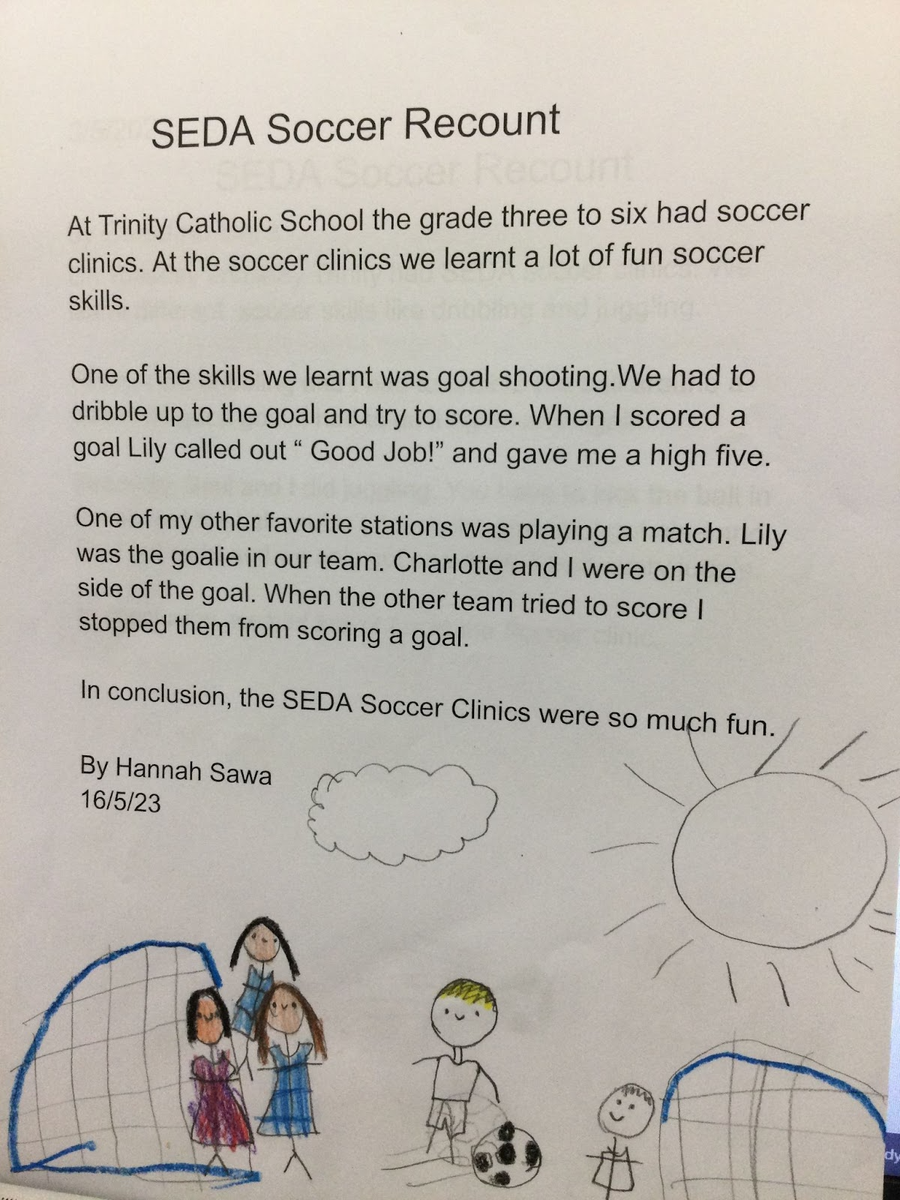 SEDA Soccer Recount
At Trinity Catholic School the grade three to six had soccer
clinics. At the soccer clinics we learnt a lot of fun soccer
skills.
One of the skills we learnt was goal shooting.We had to
dribble up to the goal and try to score. When I scored a
goal Lily called out “ Good Job!” and gave me a high five.
One of my other favorite stations was playing a match. Lily
was the goalie in our team. Charlotte and I were on the
side of the goal. When the other team tried to score I
stopped them from scoring a goal.
In conclusion, the SEDA Soccer Clinics were so much fun.
By Hannah Sawa
16/5/23